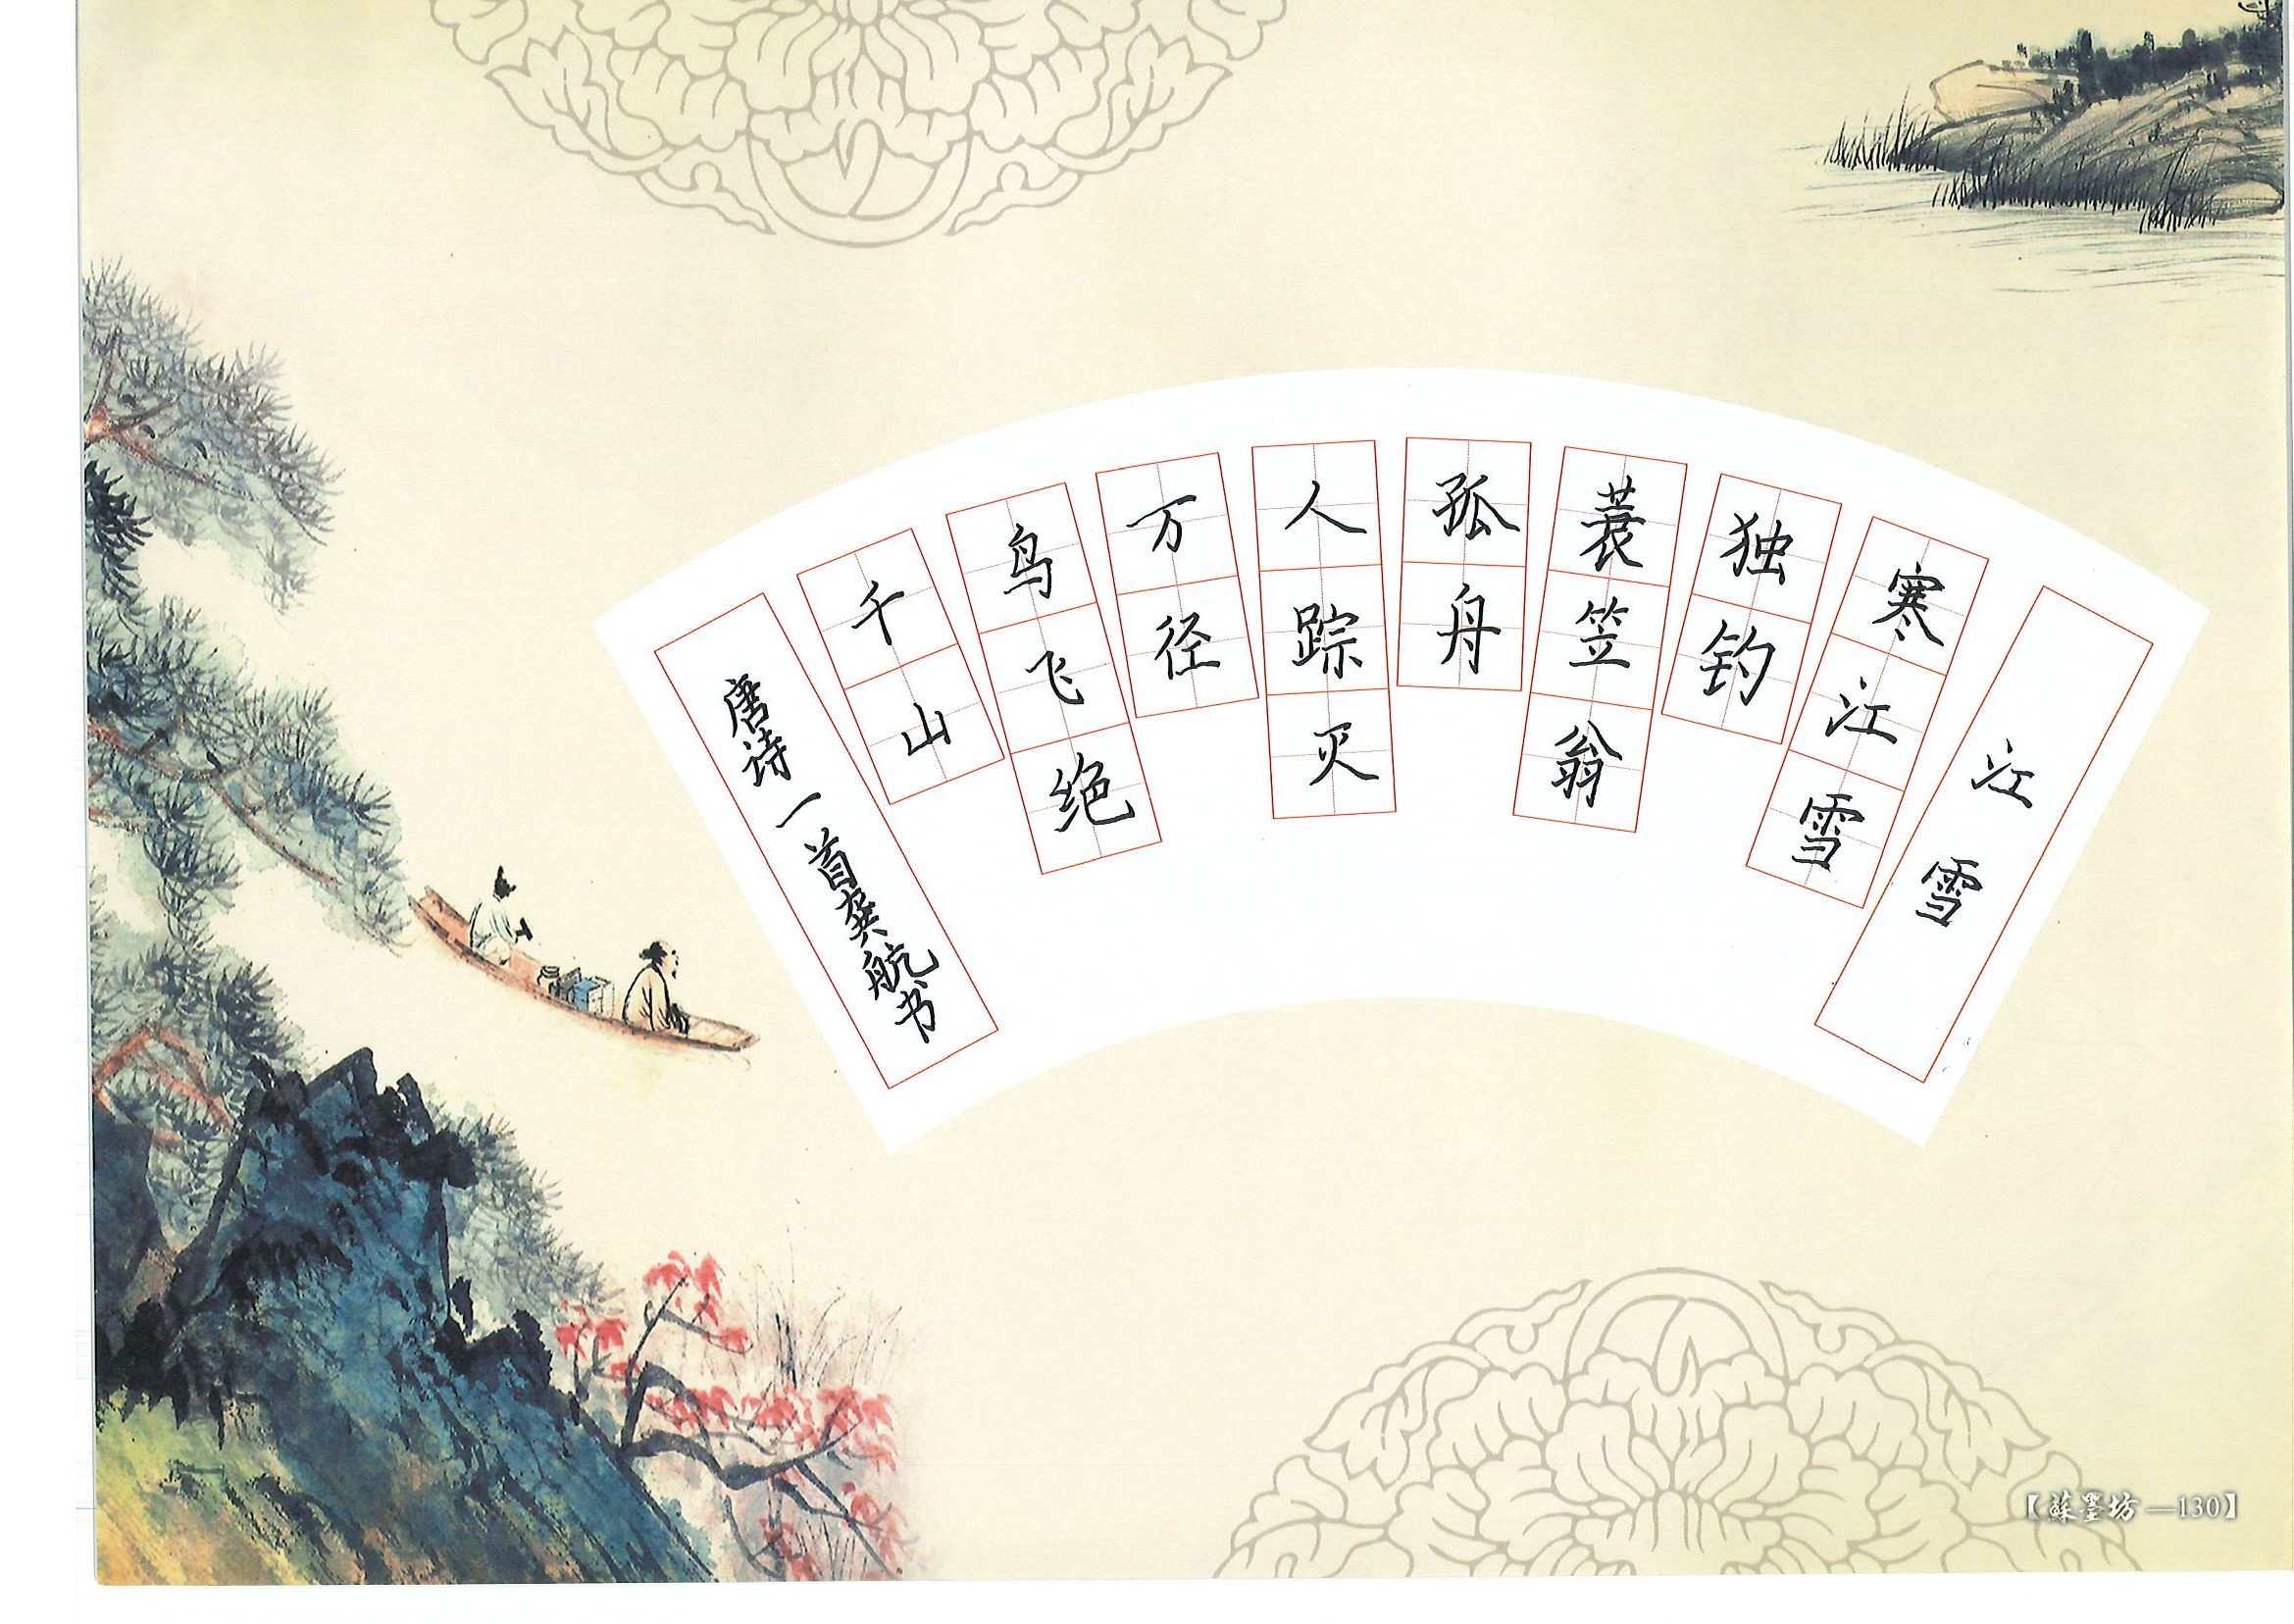 唐诗一首龚航书
千山
鸟飞绝
万径
人踪灭
孤舟
蓑笠翁
独钓
寒江雪
江雪
【蘇墨坊—130】